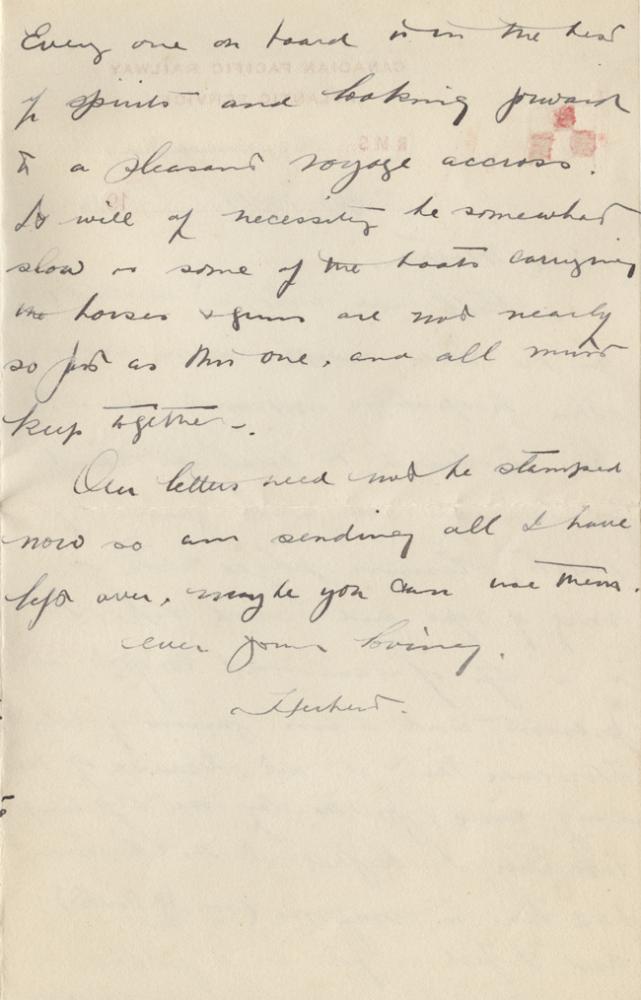 Every one on board is in the best
of spirits and looking forward
to a pleasant voyage accross.
It will of necessity be somewhat
slow as some of the boats carrying
the horses & guns are not nearly
so fast as this one, and all must
keep together.
Our letters need not be stamped
now so am sending all I have
left over, maybe you can use them.
ever yours loving.
Herbert.